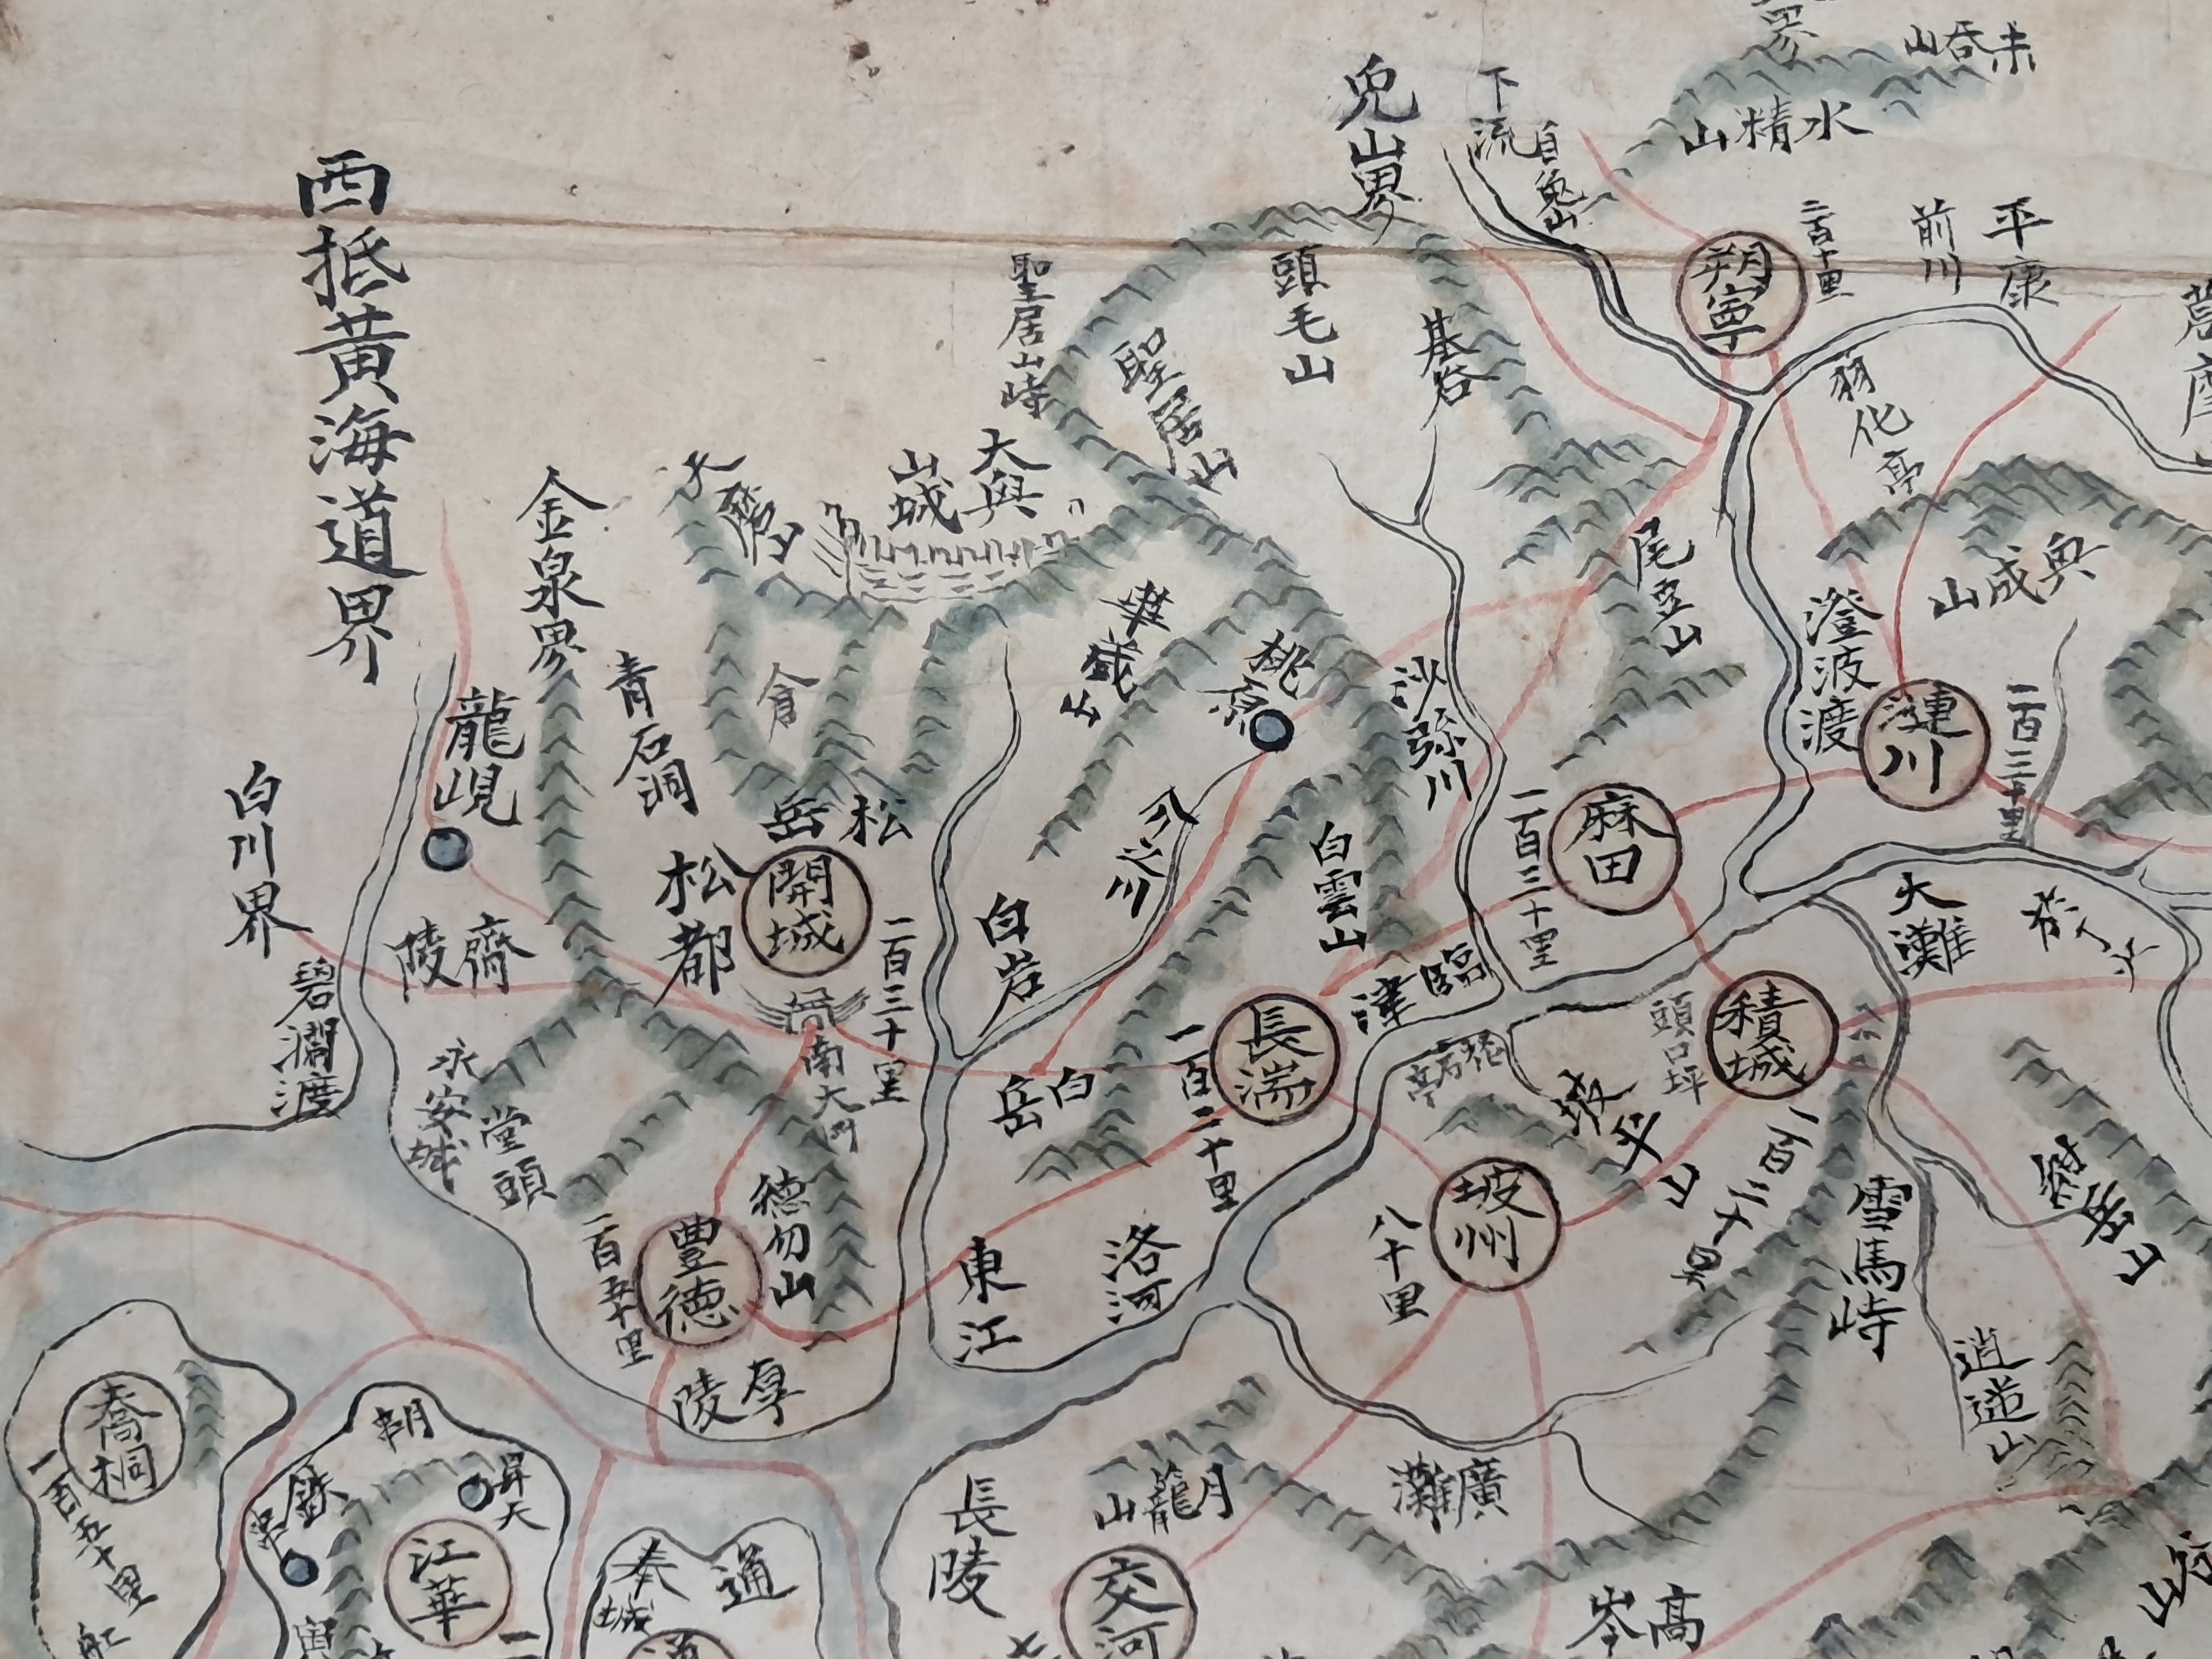 西抵黄海道界
白川界
碧瀾渡
龍峴
齊陵
金泉界
青石洞
永安城
堂頭
天磨山
大興山城
倉
松岳
松都
開城
一百三十里
南大門
聖居山
聖居山峙
頭毛山
兎山界
基谷
下流
自兎山
水精山
朔寧
二百十里
前川
平康
羽化亭
澄波渡
漣川
一百三十里
麻田
一百三十里
沙弥川
桃原
華藏山
白岩
白岳
白雲山
長湍
一百二十里
臨津
頭口坪
積城
一百二十里
大灘
坡州
八十里
雪馬峙
逍遥山
東江
洛河
德勿山
豊德
一百五十里
厚陵
喬桐
一百五十里
朔
昇天
江華
奉城
通
長陵
月籠山
交河
廣灘
高岑